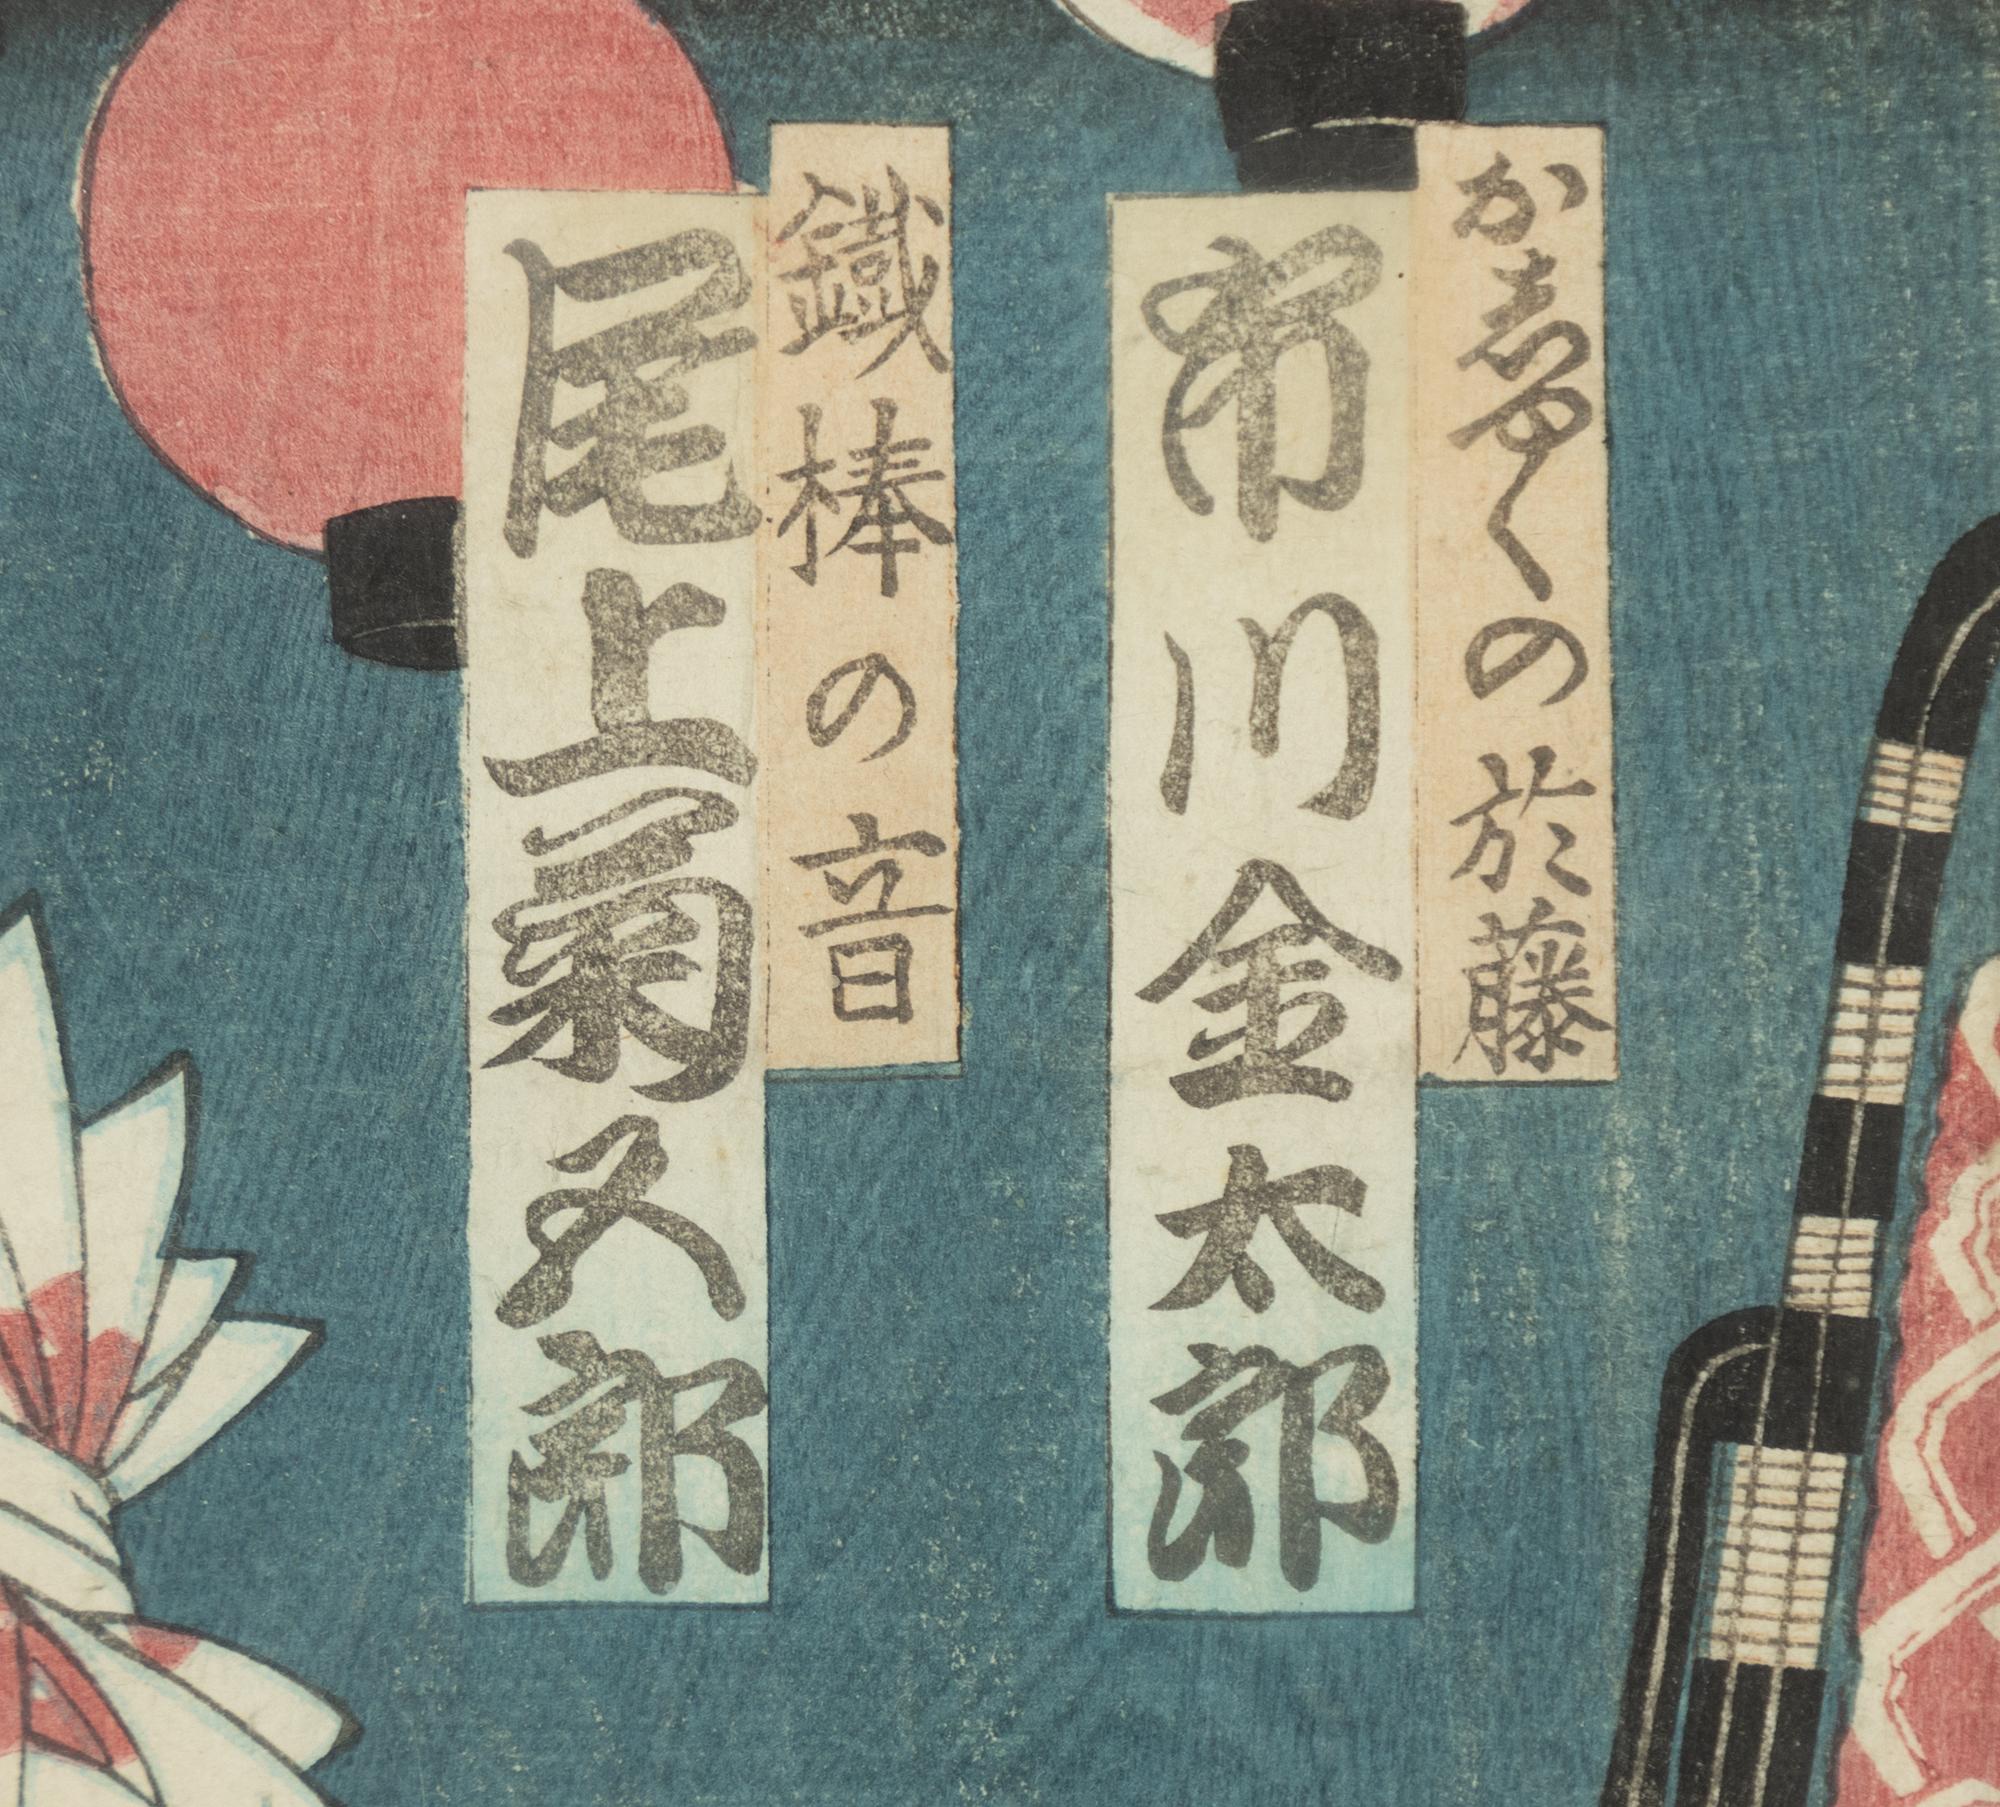 か志やくの於藤
市川金太郎
鐵棒の音
尾上菊又郎